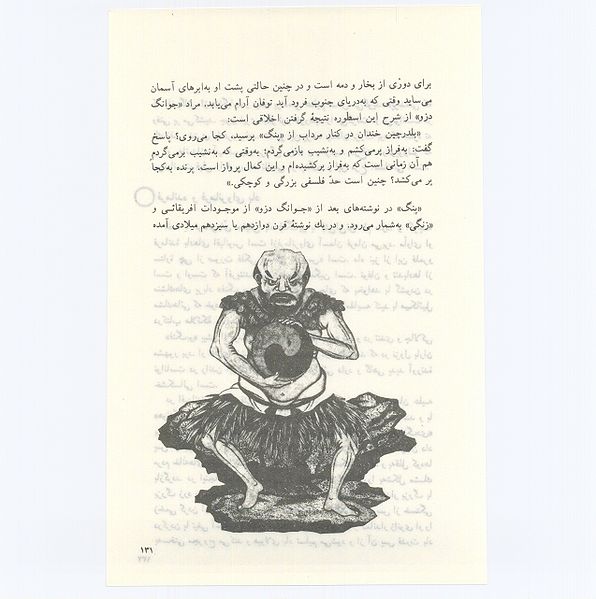 برای دوری از بخار و دمه است و در چنین حالتی پشت او به‌ابرهای آسمان
می‌ساید وقتی که به‌دریای جنوب فرود آید توفان آرام می‌یابد. مراد «جوانگ
دزو» از شرح این اسطوره نتیجهٔ گرفتن اخلاقی است:
«بلدرچین خندان در کنار مرداب از «پنگ» پرسید، کجا می‌روی؟ پاسخ
گفت: به‌فراز پرمی‌کشم و به‌نشیب بازمی‌گردم؛ به‌وقتی که به‌نشیب برمی‌گردم
هم آن زمانی است که به‌فراز پرکشیده‌ام و این کمال پرواز است. پرنده به‌کجا
پر می‌کشد؟ چنین است حدّ فلسفی بزرگی و کوچکی.»
«پنگ» در نوشته‌های بعد از «جوانگ دزو» از موجودات آفریقائی و
«زنگی» به‌شمار می‌رود، و در یك نوشتهٔ قرن دوازدهم یا سیزدهم میلادی آمده
۱۳۱